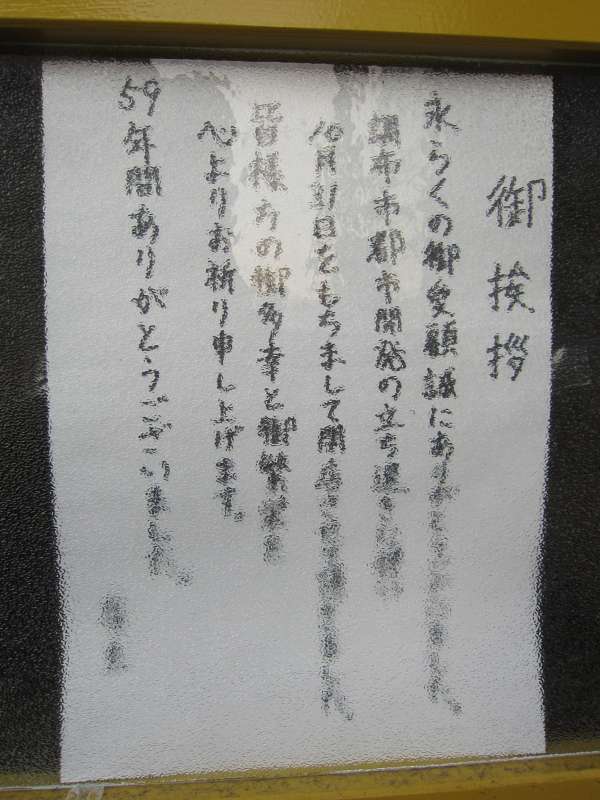 御挨拶
永らくの御愛顧誠にありがとうございました。
調布市都市開発の立ち退きの為
10月31日をもちまして閉店
皆様方の御多幸と御繁栄を
心よりお祈り申し上げます。
59年間ありがとうございました。